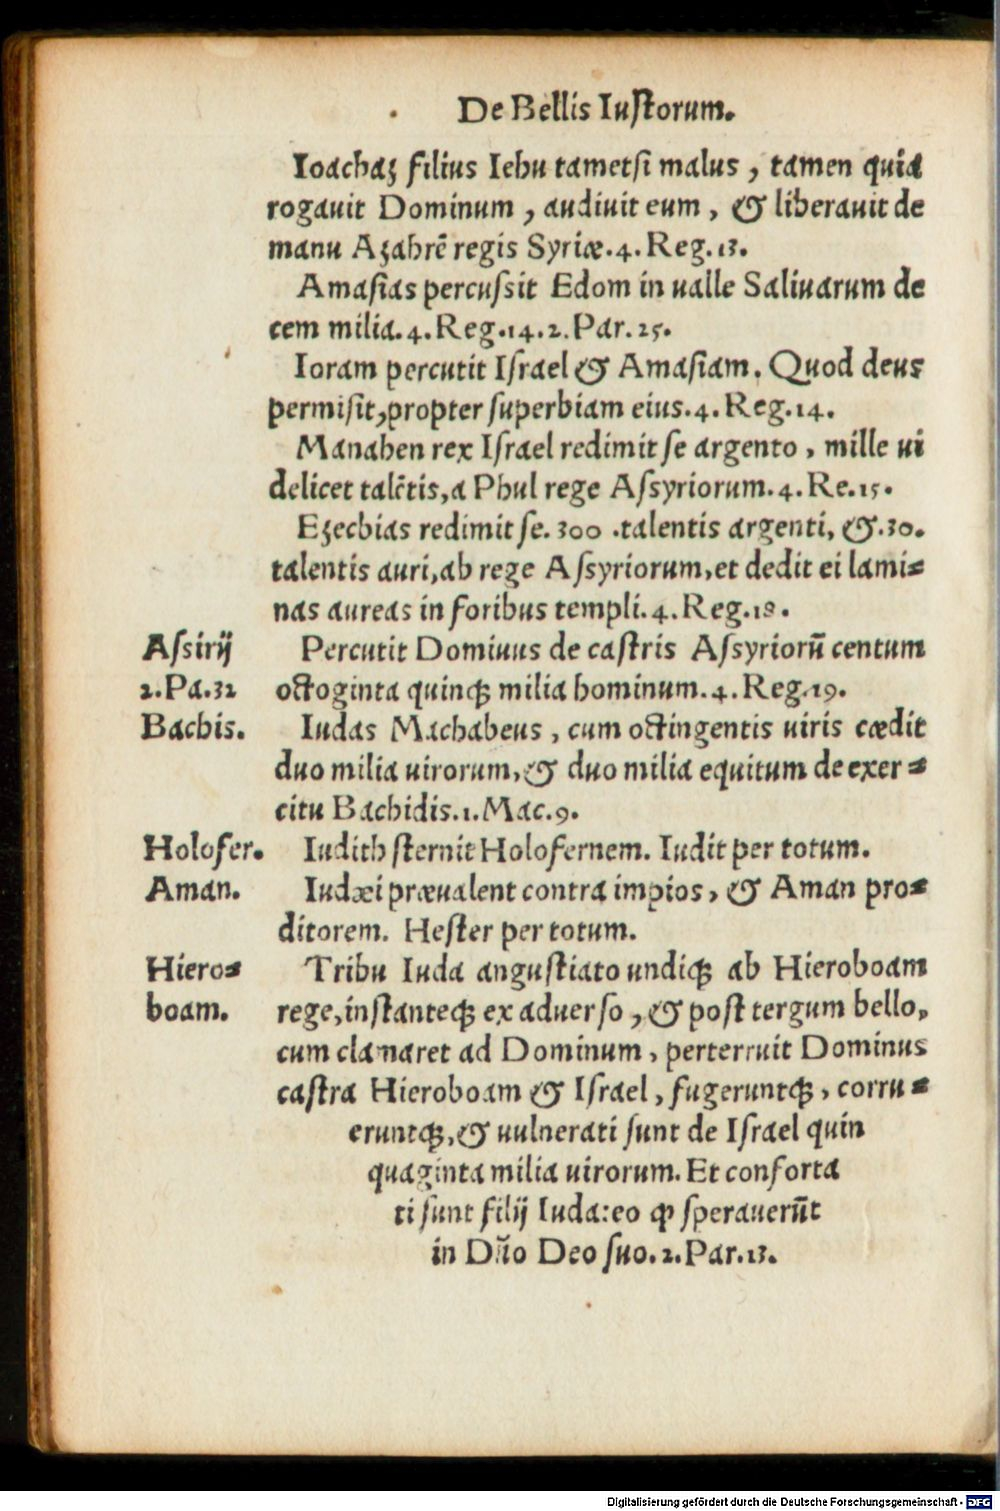 De Bellis Iuſtorum.
Ioachaz filius Iehu tametſi malus, tamen quia
rogauit Dominum, audiuit eum, & liberauit de
manu Azahrē regis Syriæ. 4. Reg. 13.
Amaſias percuſsit Edom in ualle Saliuarum de
cem milia. 4. Reg. 14. 2. Par. 25.
Ioram percutit Iſrael & Amaſiam. Quod deus
permiſit, propter ſuperbiam eius. 4. Reg. 14.
Manahen rex Iſrael redimit ſe argento, mille ui
delicet talētis, a Phul rege Aſsyriorum. 4. Re. 15.
Ezechias redimit ſe. 300 .talentis argenti, &. 30.
talentis auri, ab rege Aſsyriorum, et dedit ei lami⸗
nas aureas in foribus templi. 4. Reg. 18.
Aſsirij Percutit Dominus de caſtris Aſsyriorū centum
2. Pa. 32 octoginta quinqꝫ milia hominum. 4. Reg. 19.
Bachis. Iudas Machabeus, cum octingentis uiris cædit
duo milia uirorum, & duo milia equitum de exer⸗
citu Bachidis. 1. Mac. 9.
Holofer. Iudith ſternit Holofernem. Iudit per totum.
Aman. Iudæi præualent contra impios, & Aman pro⸗
ditorem. Heſter per totum.
Hiero⸗ Tribu Iuda anguſtiato undiqꝫ ab Hieroboam
boam. rege, inſtanteqꝫ ex aduerſo, & poſt tergum bello,
cum clamaret ad Dominum, perterruit Dominus
caſtra Hieroboam & Iſrael, fugeruntqꝫ, corru⸗
eruntqꝫ, & uulnerati ſunt de Iſrael quin
quaginta milia uirorum. Et conforta
ti ſunt filij Iuda: eo ꝙ ſperauerūt
in Dño Deo ſuo. 2. Par. 13.
Digitalisierung gefördert durch die Deutsche Forschungsgemeinschaft - DFG